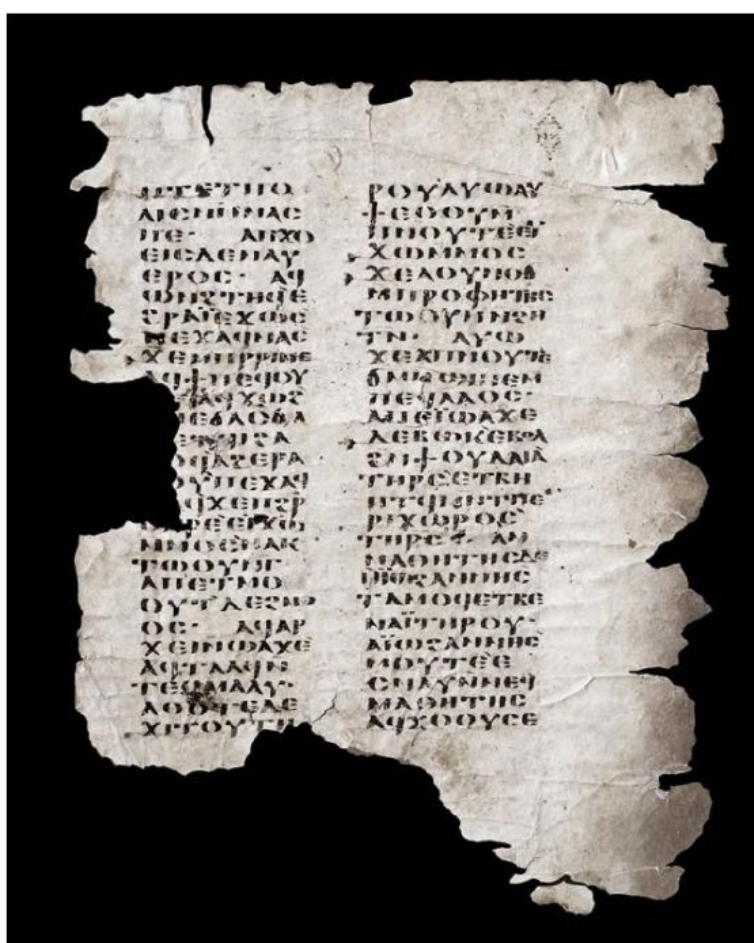 ⲛⲧⲉⲧⲡⲟ
ⲗⲓⲥⲛⲙⲙⲁⲥ
ⲡⲉ· ⲁⲡϫⲟ
ⲉⲓⲥⲇⲉⲛⲁⲩ
ⲉⲣⲟⲥ· ⲁϥ
ϣⲛϩⲧⲏϥⲉ
ϩⲣⲁⲓ̈ⲉϫⲱⲥ
ⲡⲉϫⲁϥⲛⲁⲥ
ϫⲉⲙⲡⲣⲣⲓⲙⲉ
ⲁϥϯⲡⲉϥⲟⲩ
ⲁϥϫⲱϩ
ⲡⲉϭⲗⲟϭⲁ
ⲉⲧϥⲓϩⲁ
ⲟϥⲁϩⲉⲣⲁ
ⲟⲩⲡⲉϫⲁϥ
ϥϫⲉⲡϩⲣ
ϣⲓⲣⲉⲉⲓϫⲱ
ⲙⲙⲟⲥⲛⲁⲕ
ⲧⲱⲟⲩⲛⲅ
ⲁⲡⲉⲧⲙⲟ
ⲟⲩⲧⲇⲉϩⲙⲟ
ⲟⲥ· ⲁϥⲁⲣ
ⲭⲉⲓⲛϣⲁϫⲉ
ⲁϥⲧⲁⲁϥⲛ
ⲧⲉϥⲙⲁⲁⲩ·
ⲁⲑⲟⲧⲉⲇⲉ
ϫⲓⲧⲟⲩⲧⲏ
ⲣⲟⲩⲁⲩⲱⲁⲩ
ϯⲉⲟⲟⲩⲙ
ⲡⲛⲟⲩⲧⲉⲉⲩ
ϫⲱⲙⲙⲟⲥ
ϫⲉⲁⲟⲩⲛⲟϭ
ⲙⲡⲣⲟⲫⲏⲧⲏⲥ
ⲧⲱⲟⲩⲛⲛϩⲏ
ⲧⲛ· ⲁⲩⲱ
ϫⲉⲁⲡⲛⲟⲩⲧⲉ
ϭⲙⲡϣⲓⲛⲉⲙ
ⲡⲉϥⲗⲁⲟⲥ·
ⲁⲡⲉⲓ̈ϣⲁϫⲉ
ⲇⲉⲃⲱⲕⲉⲃⲟⲗ
ϩⲛϯⲟⲩⲇⲁⲓⲁ
ⲧⲏⲣⲥⲉⲧⲃⲏ
ⲏⲧϥⲙⲛⲧⲡⲉ
ⲣⲓⲭⲱⲣⲟⲥ
ⲧⲏⲣⲥ· ⲁⲙ
ⲙⲁⲑⲏⲧⲏⲥⲇⲉ
ⲛⲓ̈ⲱϩⲁⲛⲛⲏⲥ
ⲧⲁⲙⲟϥⲉⲧⲃⲉ
ⲛⲁⲓ̈ⲧⲏⲣⲟⲩ·
ⲁⲓ̈ⲱϩⲁⲛⲛⲏⲥ
ⲙⲟⲩⲧⲉⲉ
ⲥⲛⲁⲩⲛⲛⲉϥ
ⲙⲁⲑⲏⲧⲏⲥ
ⲁϥϫⲟⲟⲩⲥⲉ